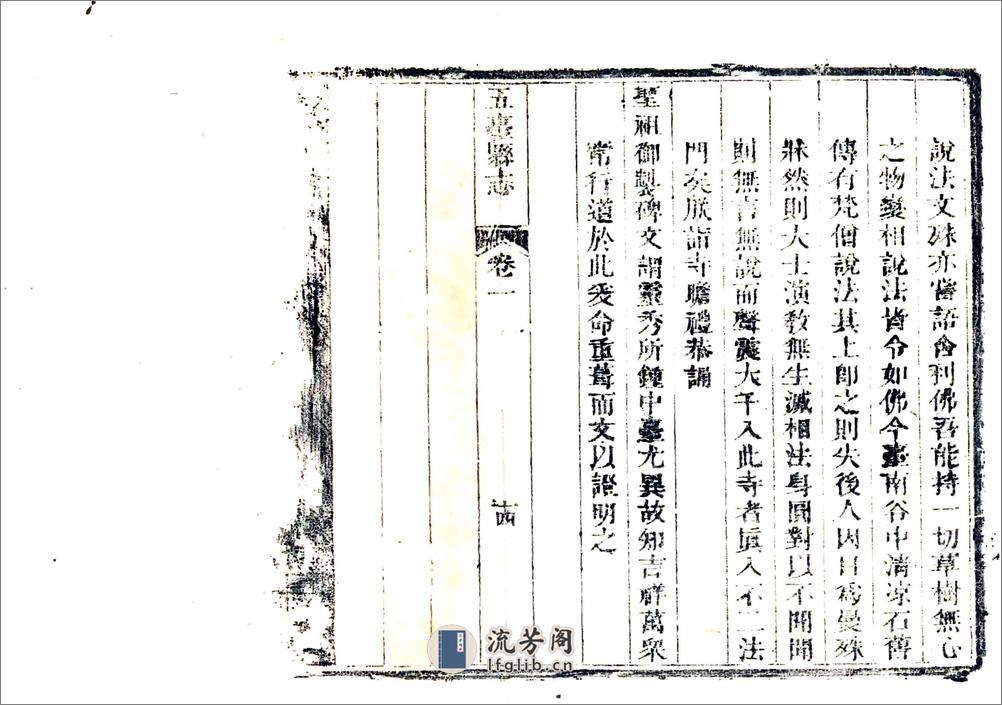 說法文殊亦嘗語會利佛吾能持一切草樹無心
之物變相說法皆令如佛今臺南谷中清涼石舊
傳有梵僧說法其上郎之則失後人因目為曼殊
牀然則大士演教無生滅相法身圓對以不聞聞
則無言無說而聲震大千入此寺者眞入不二法
門矣朕詣寺瞻禮恭誦
聖祖御製碑文謂靈秀所鍾中臺尤異故知吉祥萬衆
常行道於此爰命重葺而文以證明之
五臺縣志
卷一
十四
流芳阁
lfglib.cn